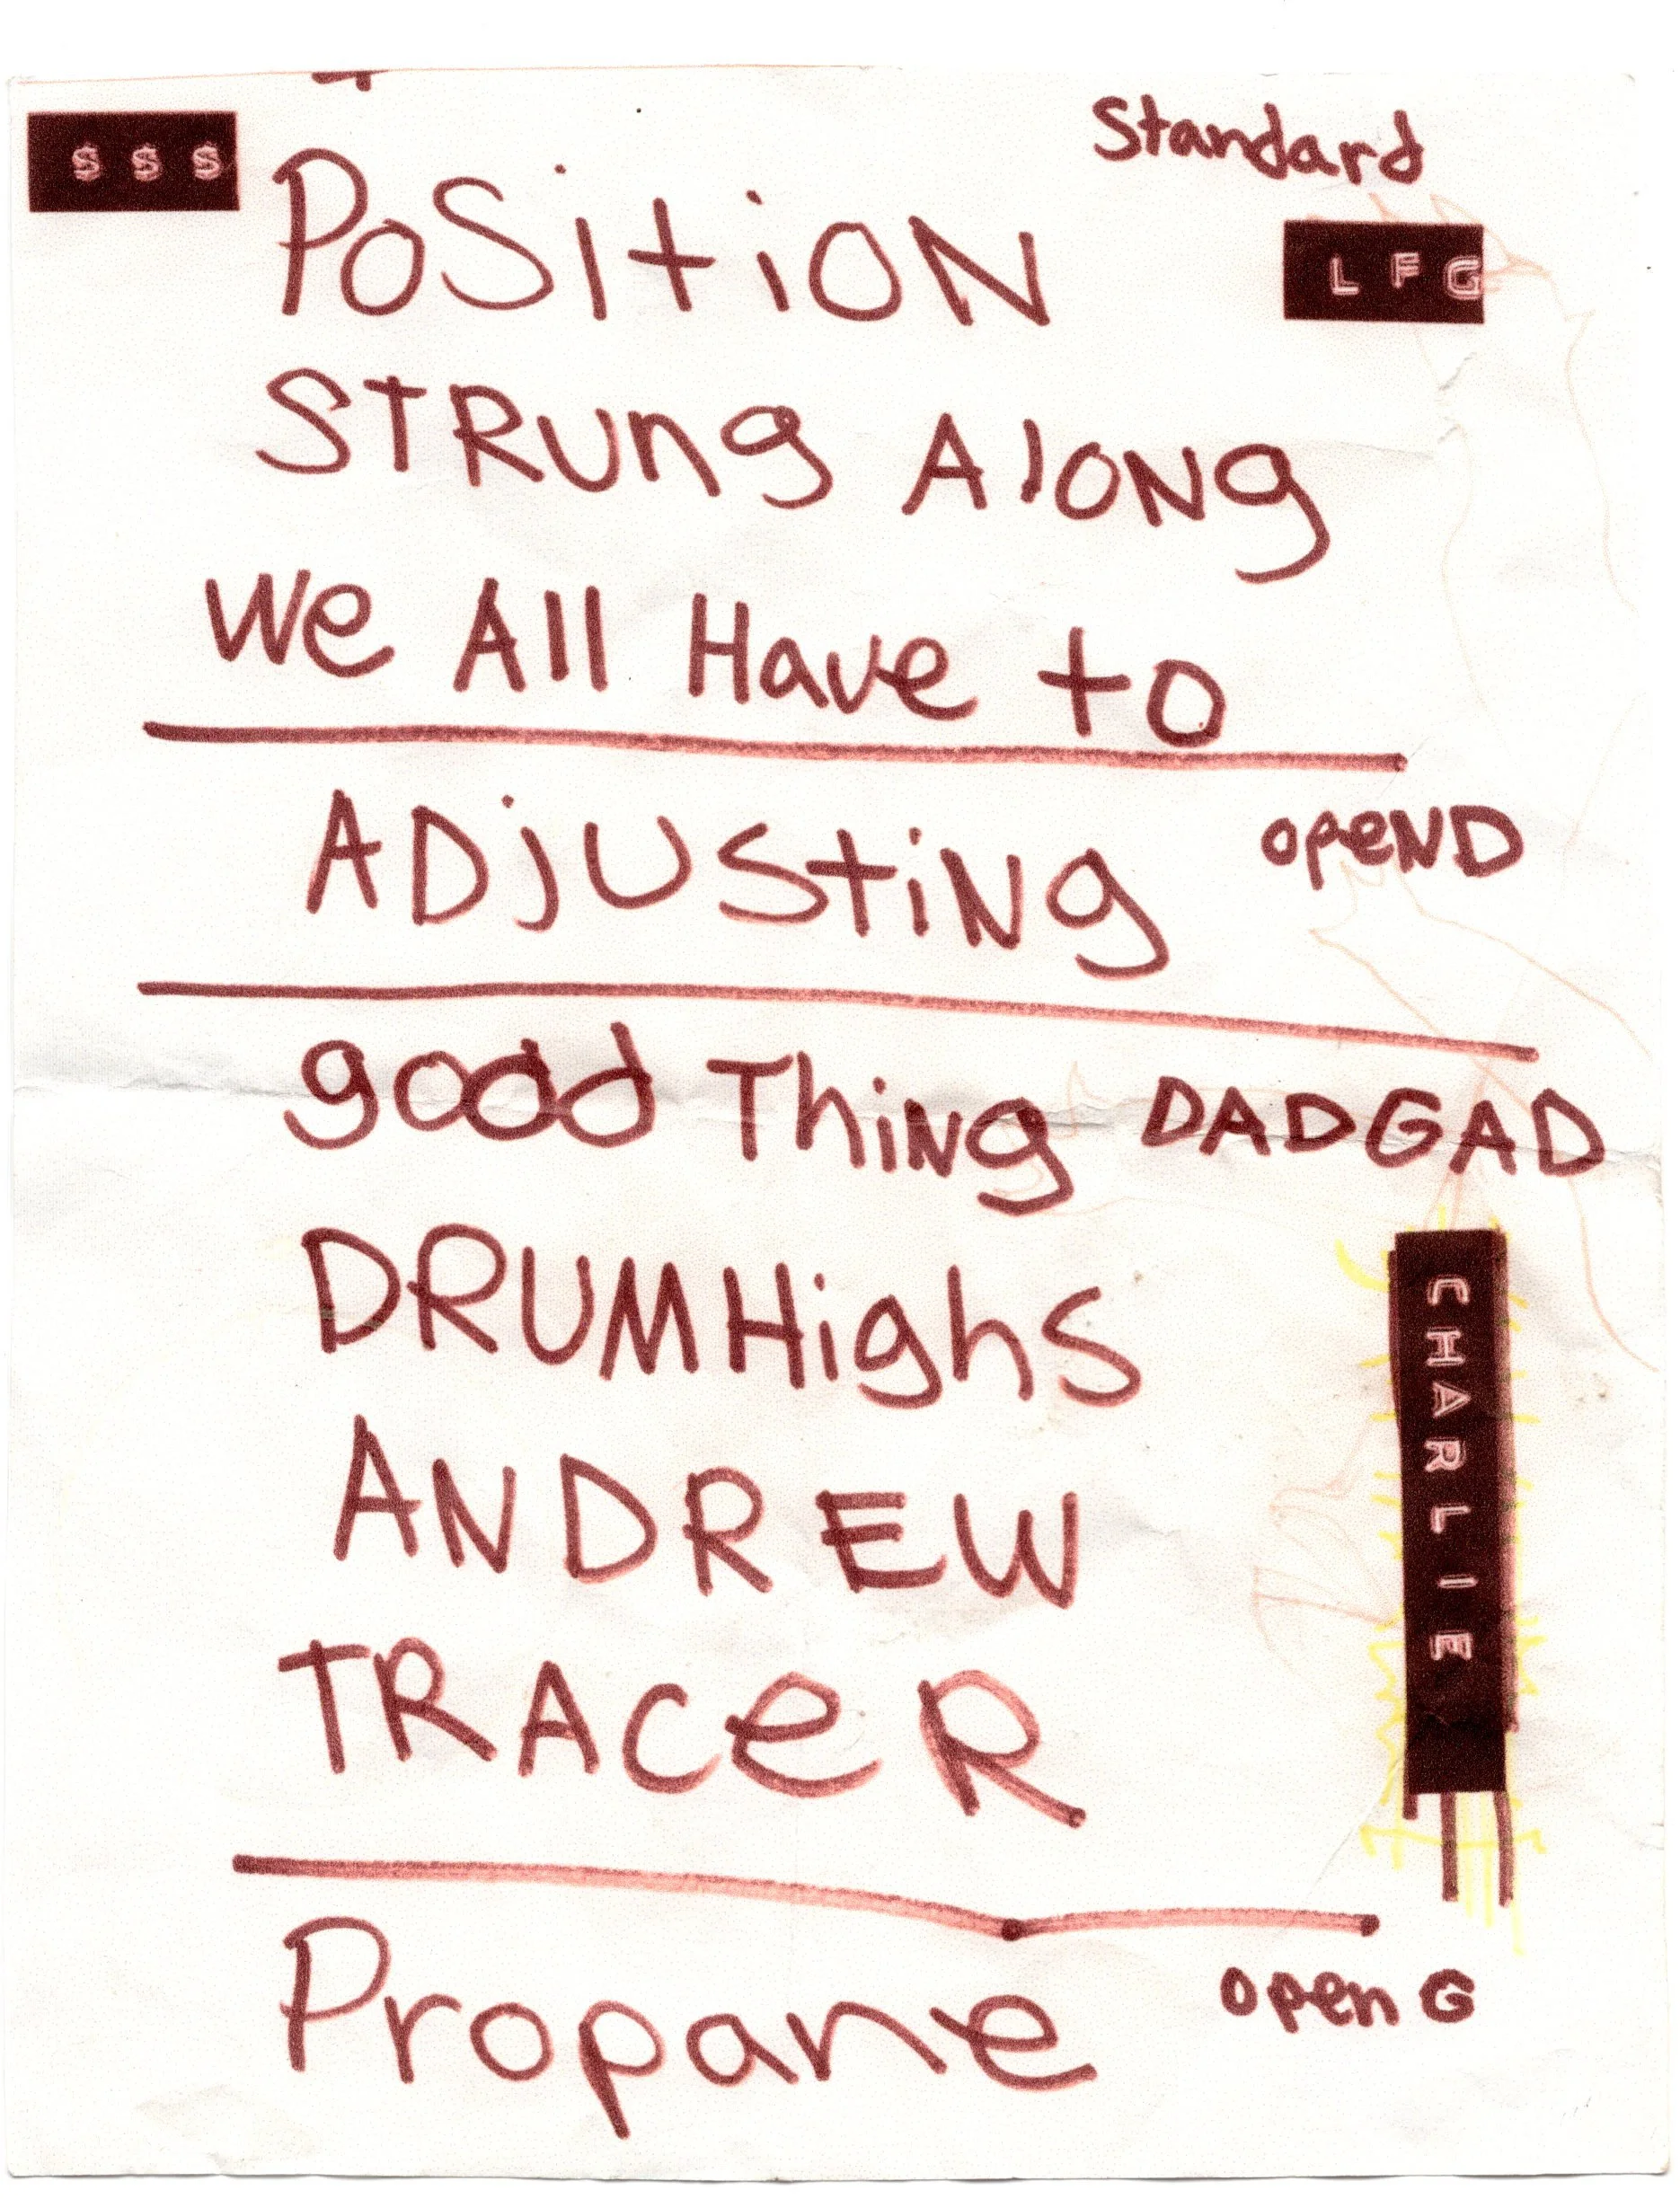 Standard
$ $ $
PoSitiON
LFG
STRung AlONg
We All Have to
ADjUStiNg
opeND
good ThiNg DADGAD
DRUMHighS
CHARLIE
ANDREW
TRACeR
Propane
open G